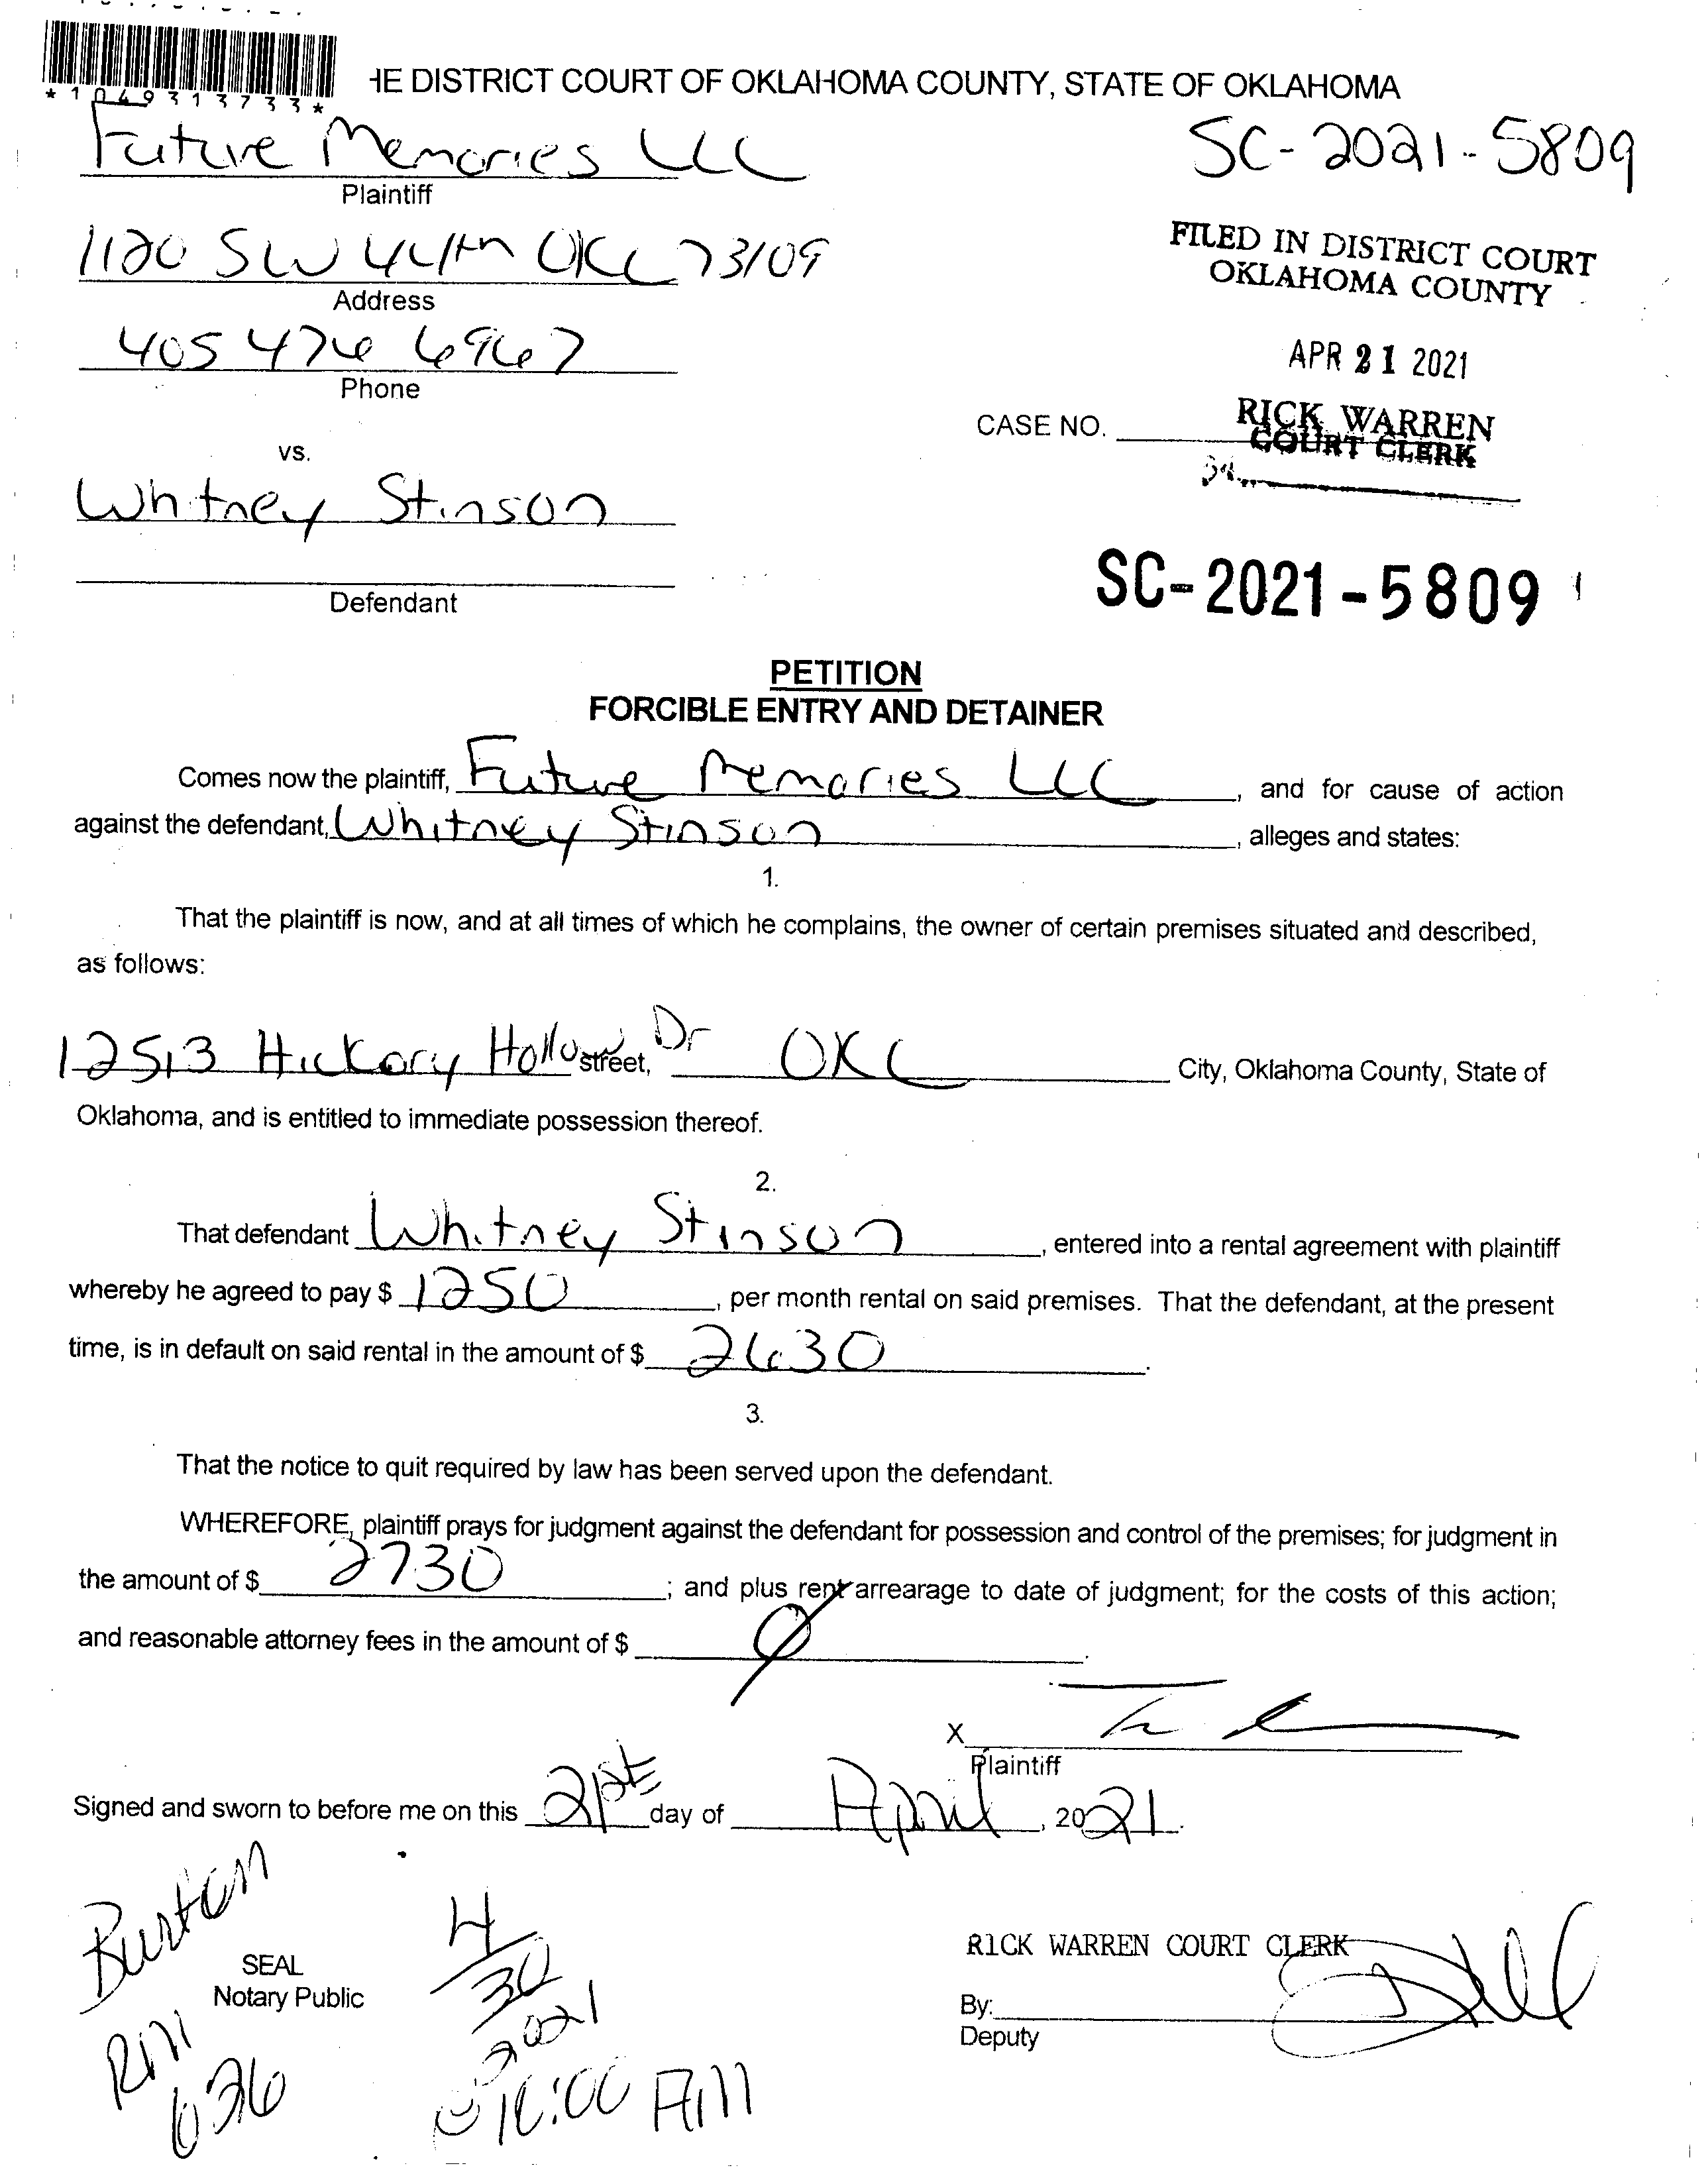 *1049313733*
HE DISTRICT COURT OF OKLAHOMA COUNTY, STATE OF OKLAHOMA
Future Memories LLC
Plaintiff
SC-2021-5809
1120 SW 44th OKC 73109
Address
FILED IN DISTRICT COURT
OKLAHOMA COUNTY
405 476 6967
Phone
APR 21 2021
CASE NO.
RICK WARREN
COURT CLERK
34
vs.
Whitney Stinson
Defendant
SC-2021-5809
PETITION
FORCIBLE ENTRY AND DETAINER
Comes now the plaintiff, Future Memories LLC, and for cause of action
against the defendant, Whitney Stinson, alleges and states:
1.
That the plaintiff is now, and at all times of which he complains, the owner of certain premises situated and described,
as follows:
12513 Hickory Hollow street, Dr OKC City, Oklahoma County, State of
Oklahoma, and is entitled to immediate possession thereof.
2.
That defendant Whitney Stinson, entered into a rental agreement with plaintiff
whereby he agreed to pay $ 1250, per month rental on said premises. That the defendant, at the present
time, is in default on said rental in the amount of $ 2630.
3.
That the notice to quit required by law has been served upon the defendant.
WHEREFORE, plaintiff prays for judgment against the defendant for possession and control of the premises; for judgment in
the amount of $ 2730; and plus rent arrearage to date of judgment; for the costs of this action;
and reasonable attorney fees in the amount of $ 0.
X
Plaintiff
Signed and sworn to before me on this 21st day of April, 2021.
Burton
RM
626
SEAL
Notary Public
4/30
2021
@ 10:00 AM
RICK WARREN COURT CLERK
By:
Deputy